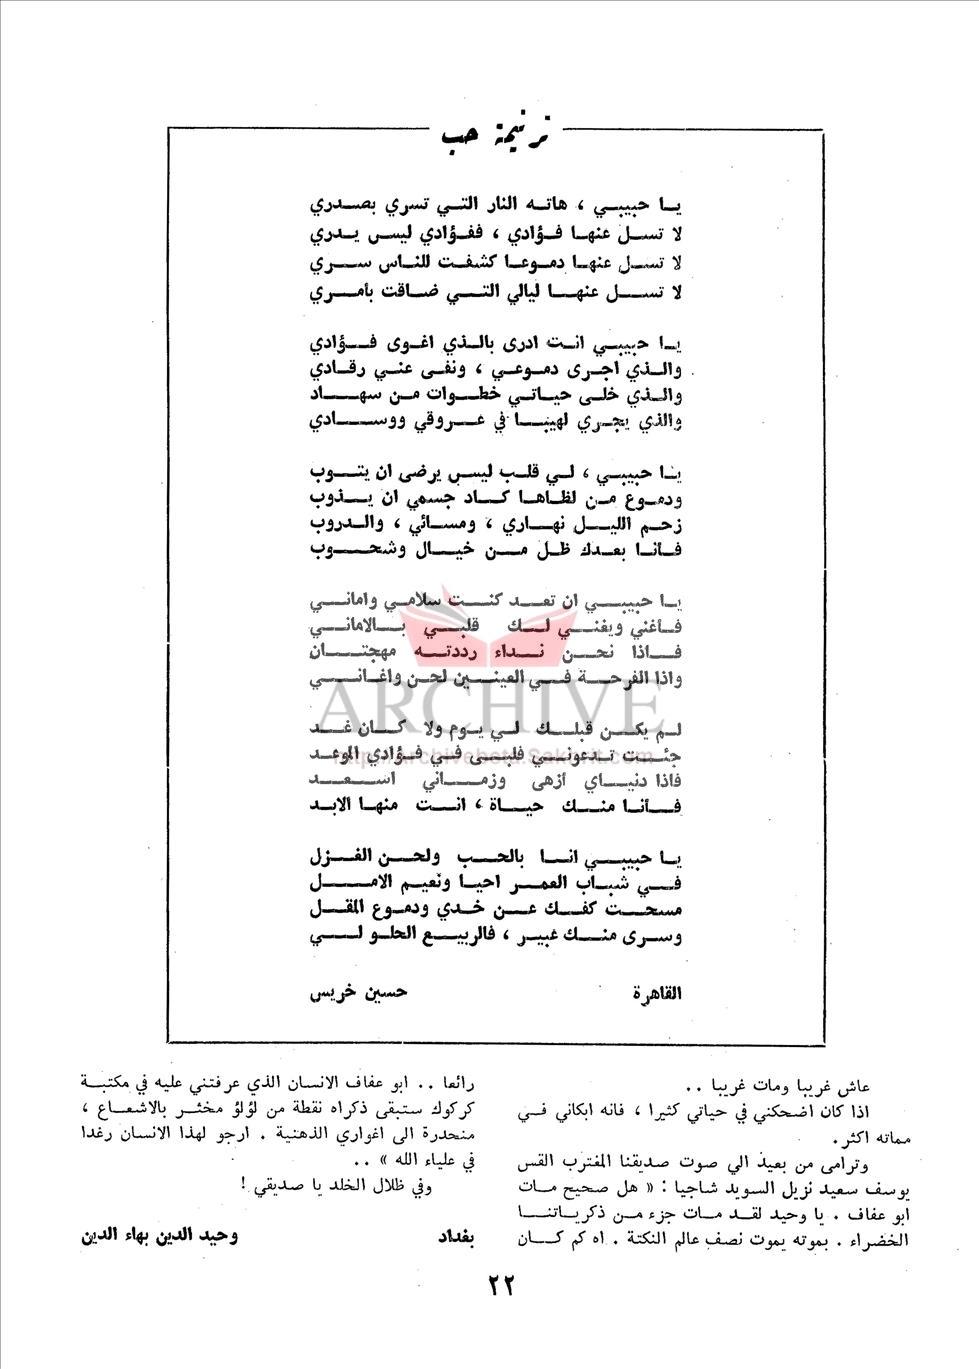 ترنيمة حب
يا حبيبي ، هاته النار التي تسري بصدري
لا تسل عنها فؤادي ، ففؤادي ليس يدري
لا تسل عنها دموعا كشفت للناس سري
لا تسل عنها ليالي التي ضاقت بأمري
يا حبيبي انت ادرى بالذي اغوى فؤادي
والذي اجرى دموعي ، ونفى عني رقادي
والذي خلى حياتي خطوات من سهاد
والذي يجري لهيبا في عروقي ووسادي
يا حبيبي ، لي قلب ليس يرضى ان يتوب
ودموع من لظاها كاد جسمي ان يذوب
زحم الليل نهاري ، ومسائي ، والدروب
فأنا بعدك ظل من خيال وشحوب
يا حبيبي ان تعد كنت سلامي واماني
فأغني ويغني لك قلبي بالاماني
فاذا نحن نداء رددته مهجتان
واذا الفرحة في العينين لحن واغاني
ARCHIVE
لم يكن قبلك لي يوم ولا كان غد
جئت تدعوني فلبى في فؤادي الموعد
http://archivebeta.Sakhrit.com
فاذا دنياي ازهى وزماني اسعد
فأنا منك حياة ، انت منها الابد
يا حبيبي انا بالحب ولحن الغزل
في شباب العمر احيا ونعيم الامل
مسحت كفك عن خدي ودموع المقل
وسرى منك عبير ، فالربيع الحلو لي
القاهرة حسين خريس
عاش غريبا ومات غريبا ..
اذا كان اضحكني في حياتي كثيرا ، فانه ابكاني في
مماته اكثر .
وترامى من بعيد الي صوت صديقنا المغترب القس
يوسف سعيد نزيل السويد شاجيا : « هل صحيح مات
ابو عفاف . يا وحيد لقد مات جزء من ذكرياتنا
الخضراء . بموته يموت نصف عالم النكتة . اه كم كان
رائعا .. ابو عفاف الانسان الذي عرفتني عليه في مكتبة
كركوك ستبقى ذكراه نقطة من لؤلؤ مخثر بالاشعاع ،
منحدرة الى اغواري الذهنية . ارجو لهذا الانسان رغدا
في علياء الله » ..
وفي ظلال الخلد يا صديقي !
بغداد وحيد الدين بهاء الدين
٢٢